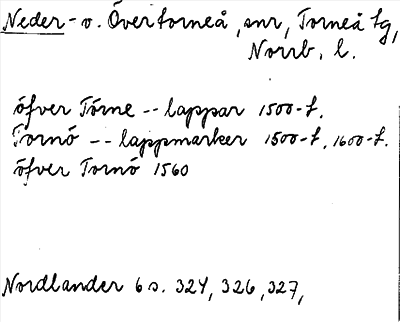 Neder- o. Övertorneå, snr, Torneå tg,
Norrb. l.
öfver Törne -- lappar 1500-t.
Tornö -- lappmarker 1500-t, 1600-t.
öfver Tornö 1560
Nordlander 6 s. 324, 326, 327,